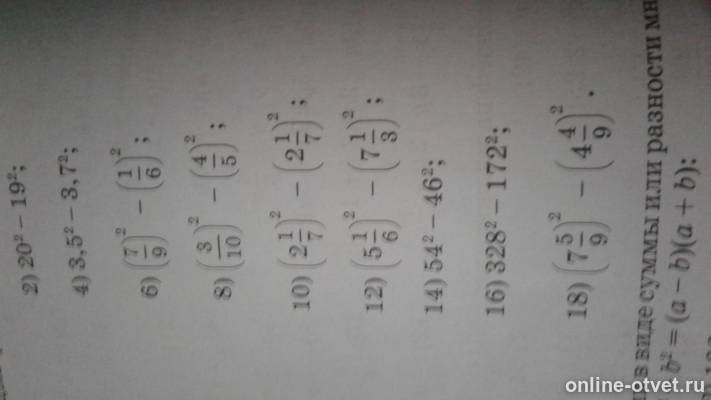 2) 20² − 19²;
4) 3,5² − 3,7²;
6) (7/9)² − (1/6)²;
8) (3/10)² − (4/5)²;
10) (2 1/7)² − (2 1/7)²;
12) (5 1/6)² − (7 1/3)²;
14) 54² − 46²;
16) 328² − 172²;
18) (7 5/9)² − (4 4/9)².
в виде суммы или разности
b² = (a − b)(a + b):
online-otvet.ru